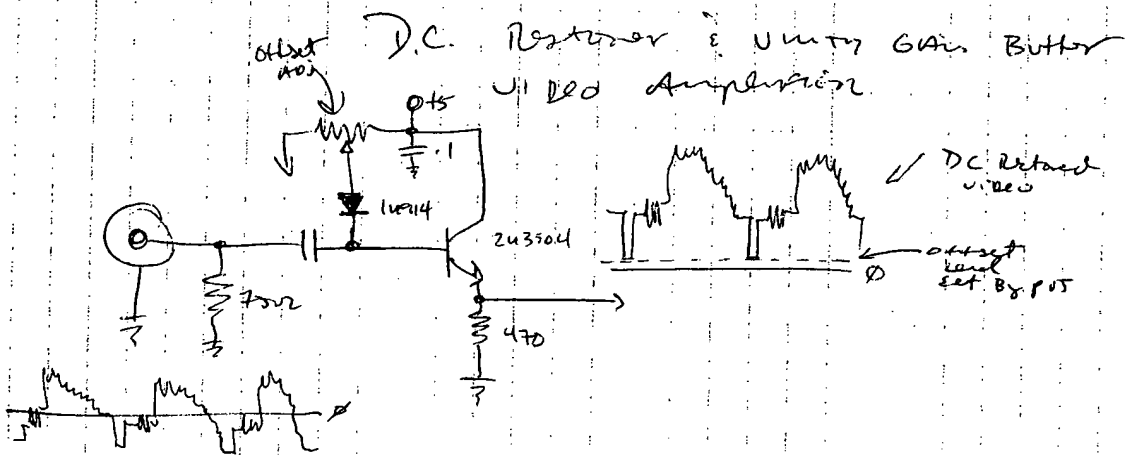 D.C. Restorer & Unity Gain Buffer
Video Amplifier
Offset
Adj
+5
.1
1N914
2N3904
75Ω
470
DC Restored
video
Offset
level
set By pot
Ø
Ø